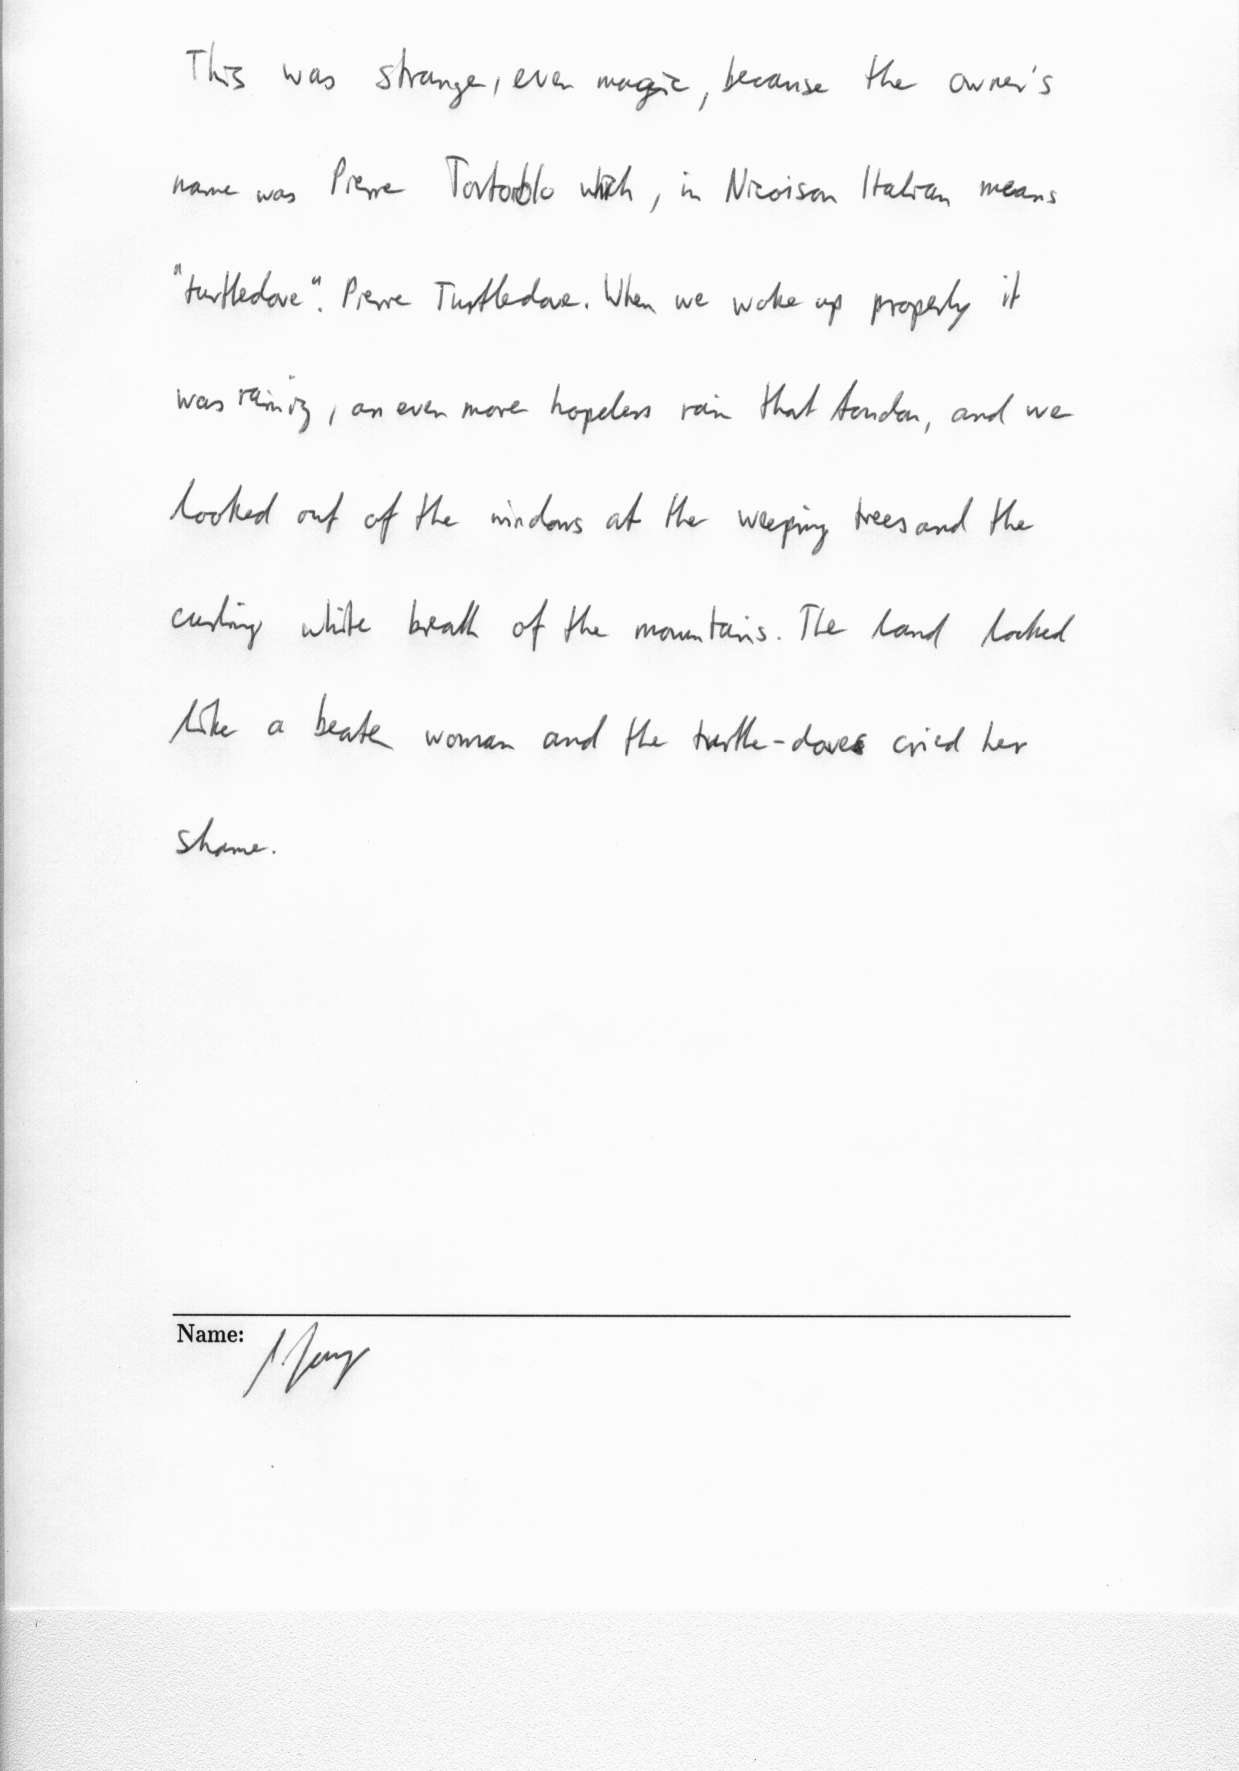 This was strange, even magic, because the owner's
name was Pierre which, in Nicoison Italian means
"turtledove". Pierre Turtledove. When we woke up properly it
was raining, an even more hopeless rain that London, and we
looked out of the windows at the weeping trees and the
curling white breath of the mountains. The land looked
like a beaten woman and the turtle-doves cried her
shame.
Name: